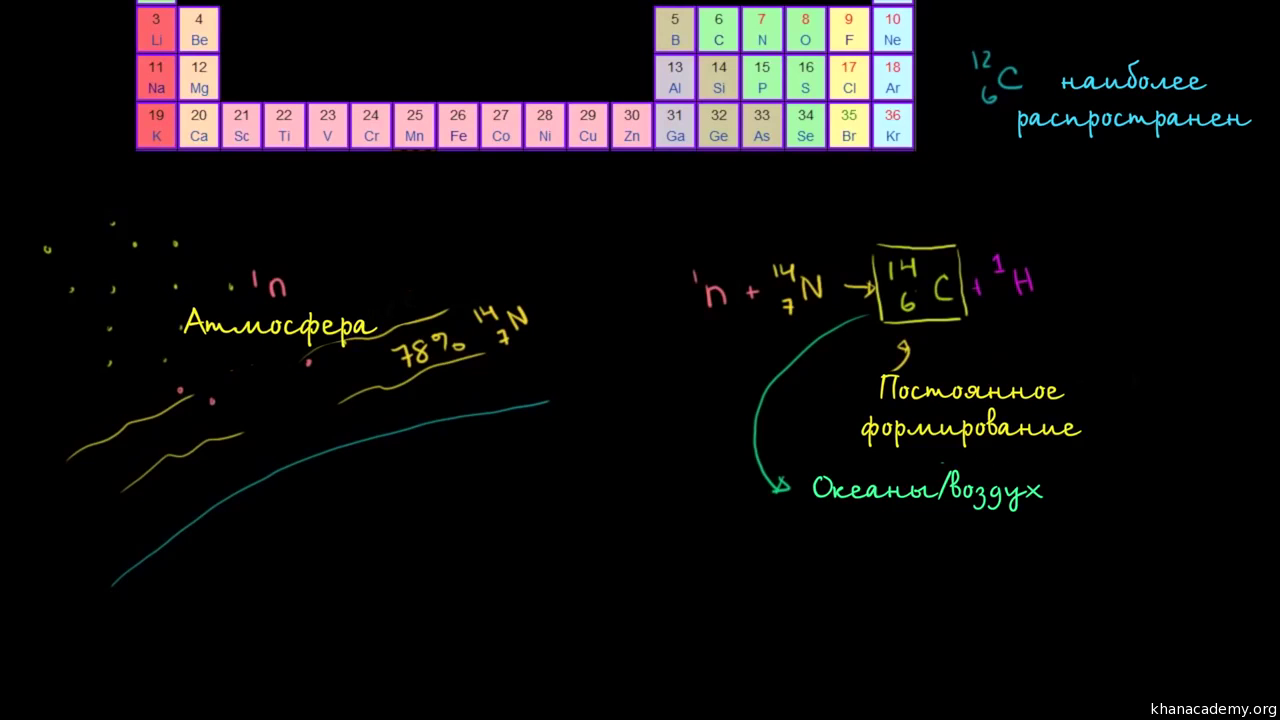 3 4 5 6 7 8 9 10
Li Be B C N O F Ne
11 12 13 14 15 16 17 18
Na Mg Al Si P S Cl Ar
19 20 21 22 23 24 25 26 27 28 29 30 31 32 33 34 35 36
K Ca Sc Ti V Cr Mn Fe Co Ni Cu Zn Ga Ge As Se Br Kr
¹²₆C наиболее
распространен
¹n
Атмосфера
78% ¹⁴₇N
¹n + ¹⁴₇N → ¹⁴₆C + ¹H
Постоянное
формирование
Океаны/воздух
khanacademy.org